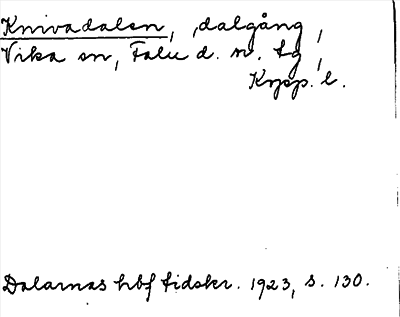 Knivadalen, dalgång,
Vika sn, Falu d. sv. tg,
Kopp. l.
Dalarnas hbf tidskr. 1923, s. 130.